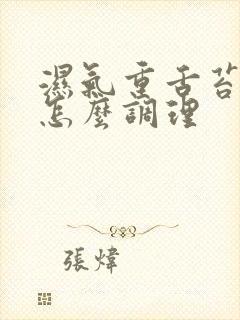 濕氣重舌苔
怎麼調理
張煒